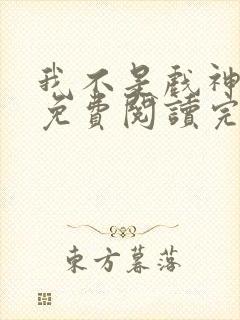 我不是戲神
免費閱讀完
東方暮落